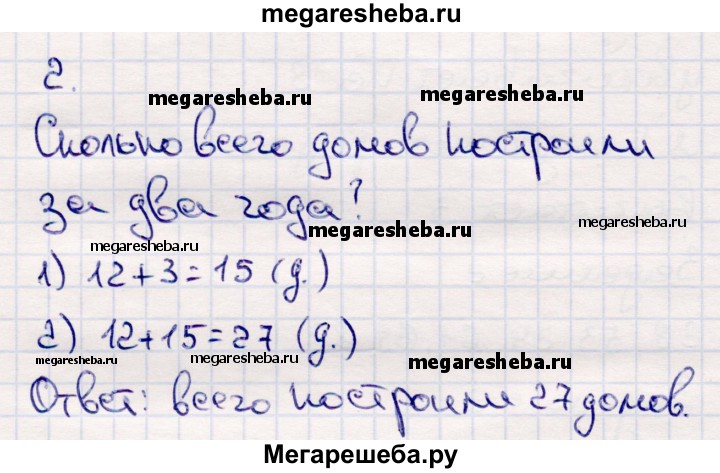 megaresheba.ru
2.
megaresheba.ru megaresheba.ru
Сколько всего домов построили
за два года?
megaresheba.ru megaresheba.ru megaresheba.ru
1) 12+3=15 (д.)
2) 12+15=27 (д.)
megaresheba.ru megaresheba.ru megaresheba.ru
Ответ: всего построили 27 домов.
Мегарешеба.ру